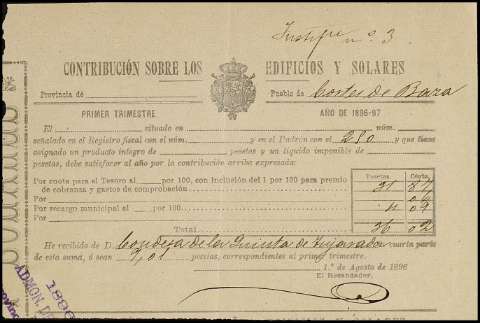 Justif nº 3
CONTRIBUCIÓN SOBRE LOS EDIFICIOS Y SOLARES
Provincia de Pueblo de Cortes de Baza
PRIMER TRIMESTRE AÑO DE 1896-97
El situado en núm.
señalado en el Registro fiscal con el núm. y en el Padrón con el 280 y que tiene
asignado un producto íntegro de pesetas y un líquido imponible de
pesetas, debe satisfacer al año por la contribución arriba expresada:
Pesetas Cénts.
Por cuota para el Tesoro al por 100, con inclusión del 1 por 100 para premio
de cobranza y gastos de comprobación 31 87
Por 06
Por recargo municipal el por 100 4 09
Por
Total 36 02
He recibido de D. Condesa de la Quinta de cuarta parte
de esta suma, ó sean 9,01 pesetas, correspondientes al primer trimestre.
1.º de Agosto de 1896
El Recaudador,
ADMON. DE
189